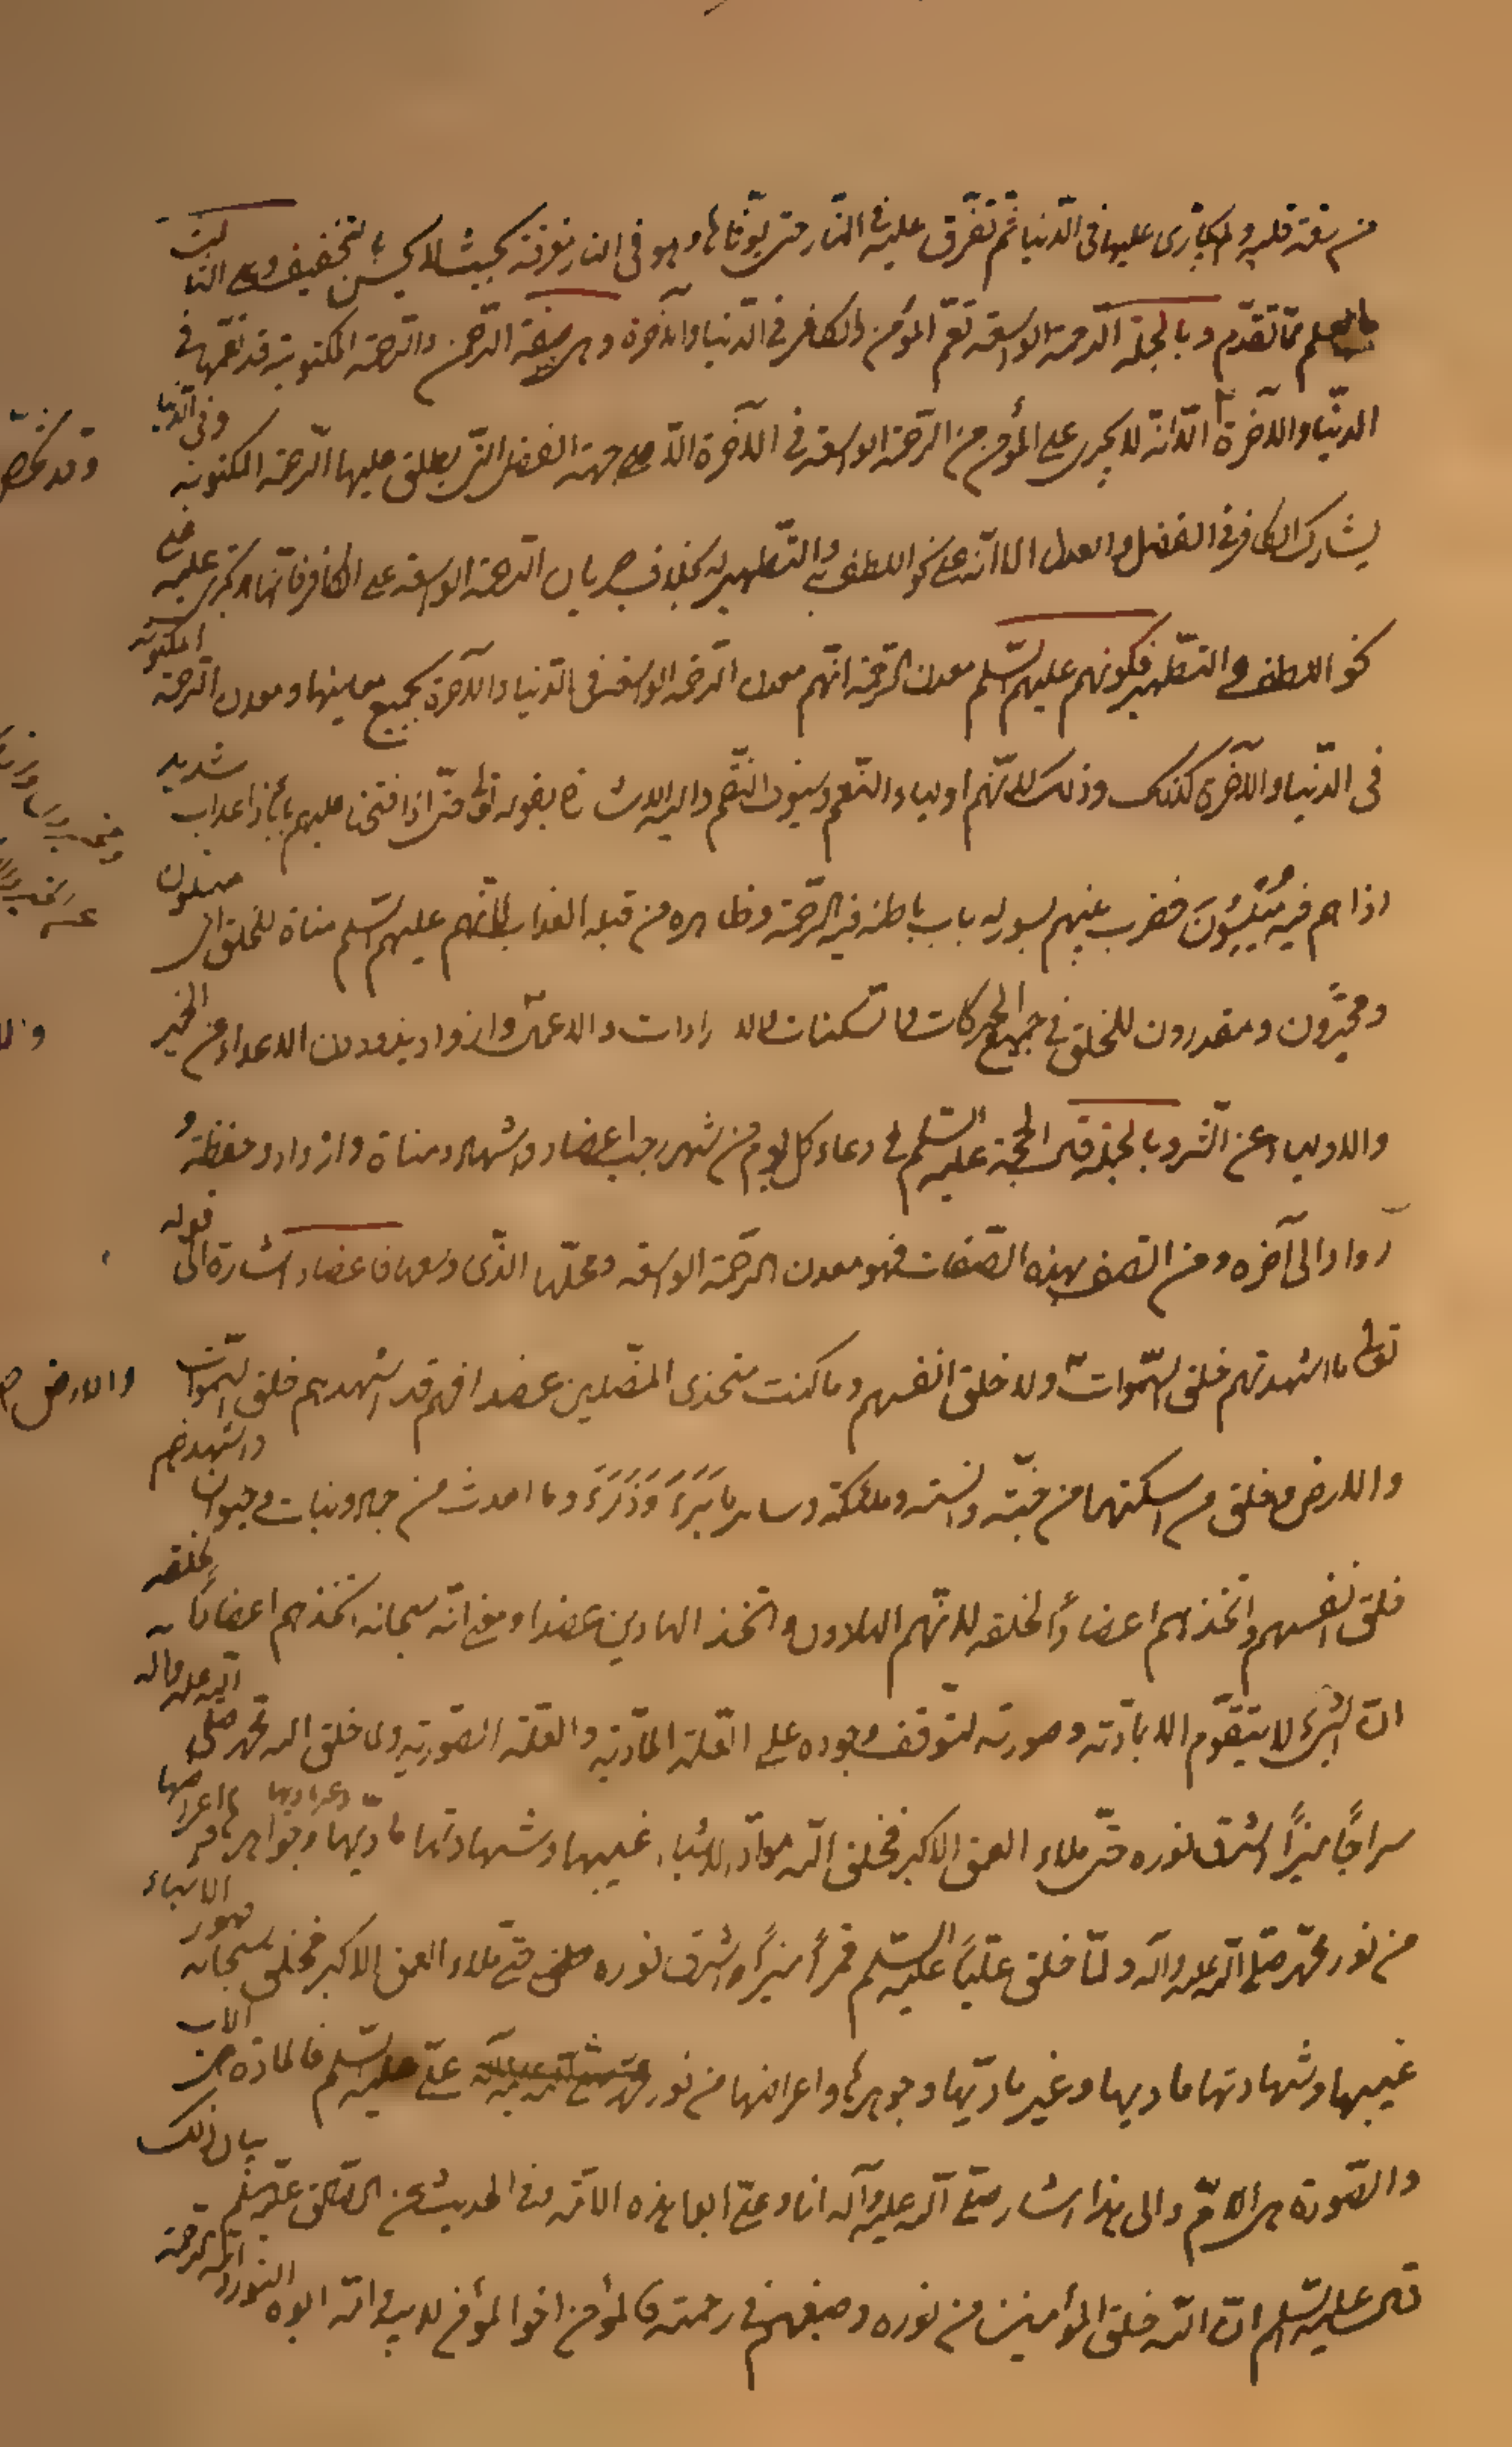 من بقية قلبه ولم يجازى عليها فى الدّنيا ثم تفرّق عليه فى النّار حتى يوتى بها وهو فى النار مفرقة بحيث لا يحسّ بالتخفيف
مما تقدّم وبالجملة الرحمة الواسعة تعمّ المؤمن والكافر فى الدّنيا والآخرة وهى صفة الرّحمن والرّحمة المكتوبة قد تعمّهما فى
الدنيا والآخرة الّا انّه لا يجرى على المؤمن من الرّحمة الواسعة فى الآخرة الّا من جهة الفضل التى يطلق عليها الرّحمة المكتوبة وفى الدنيا
يشارك الكافر فى الفضل والعدل الا انّه على نحو اللطف به والتّطهير له بخلاف جريان الرّحمة الواسعة على الكافر فانّها لا تجرى عليه على
نحو اللطف والتطهير فكونهم عليهم السّلم معدن الرّحمة انّهم معدن الرحمة الواسعة فى الدّنيا والآخرة بجميع معانيها ومعدن الرّحمة المكتوبة
فى الدّنيا والآخرة كذلك وذلك لانّهم اولياء النّعم وسيوف النّقم واليه الاشارة بقوله تعالى حتّى اذا فتحنا عليهم بابًا ذا عذاب شديد
اذا هم فيه مُبْلِسُونَ فضرب بينهم بسور له باب باطنه فيه الرّحمة وظاهره من قبله العذاب لانّهم عليهم السّلم مناة للخلق
ومخيّرون ومقدرون للخلق فى جميع الحركات والسّكنات والارادات والاعمال واذواد يذودون الاعداء من الخير
والاولياء عن الشّر وبالجملة قال الحجة عليه السّلم فى دعاء كل يوم من شهر رجب اعضاد واشهاد ومناة واذواد وحفظة و
روّاد الى آخره ومن اتّصف بهذه الصّفات فهو معدن الرّحمة الواسعة ومحلّها الذّى وسعها فاعضاد اشارة الى قوله
تعالى ما اشهدتهم خلق السّموات ولا خلق انفسهم وما كنت متخذى المضّلين عضدا فهم قد اشهدهم خلق السّموات
والارض وخلق من اسكنهما من جنّة وانسته وملائكة وساير ما بَرَءَ وَذَرَءَ وما احدث من جماد ونبات وحيوان واشهدهم
خلق انفسهم واتخذهم اعضادًا لخلقه لانّهم الهادون واتخذ الهادين عضدا ومعنى انّه سبحانه اتخذهم اعضادًا لخلقه
انّ الشئ لا يتقوّم الا بمادّته وصورته لتوقف وجوده على العلّة المادّية والعلّة الصّورية ولما خلق الله محمد صلى الله عليه وآله
سراجًا منيرًا اشرق نوره حتّى ملاء العمق الاكبر فخلق الله موادّ الاشياء غيبها وشهادتها مادّيها وجواهرها واعراضها
من نور محمّد صلّى الله عليه وآله ولمّا خلق عليًّا عليه السّلم قمرًا منيرًا واشرق نوره حتّى ملاء العمق الاكبر فخلق سبحانه صور الاشياء
غيبها وشهادتها ماديها وغير مادّيها وجوهرها واعراضها من نور علىّ عليه السّلم فالمادّة هى الاب
والصّورة هى الامّ والى هذا اشار صلّى الله عليه وآله انا وعلىّ ابوا هذه الامّة وفى الحديث عن الصّادق عليه السّلم بيان ذلك
قال عليه السّلم انّ اللّه خلق المؤمنين من نوره وصبغهم فى رحمته فالمؤمن اخوا المؤمن لابيه وامّه ابوه النور وامّه الرّحمة
والارض